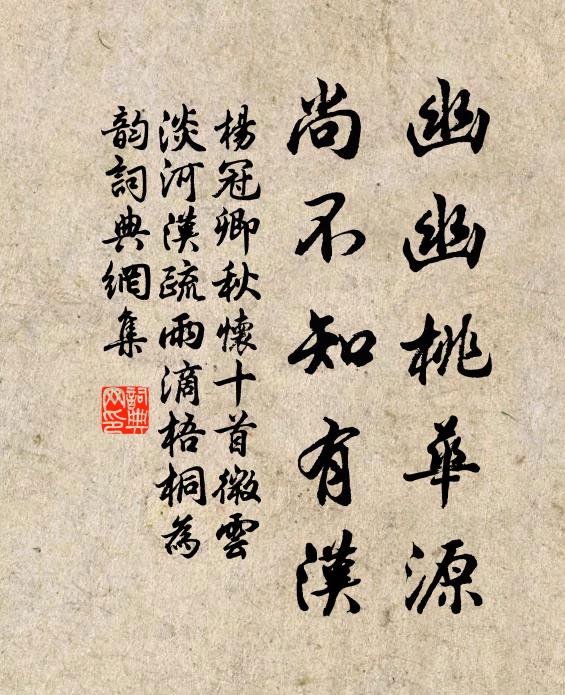 幽幽桃華源
尚不知有漢
楊冠卿秋懷十首微雲
淡河漢疏雨滴梧桐為
韵詞典網集
詞典網印